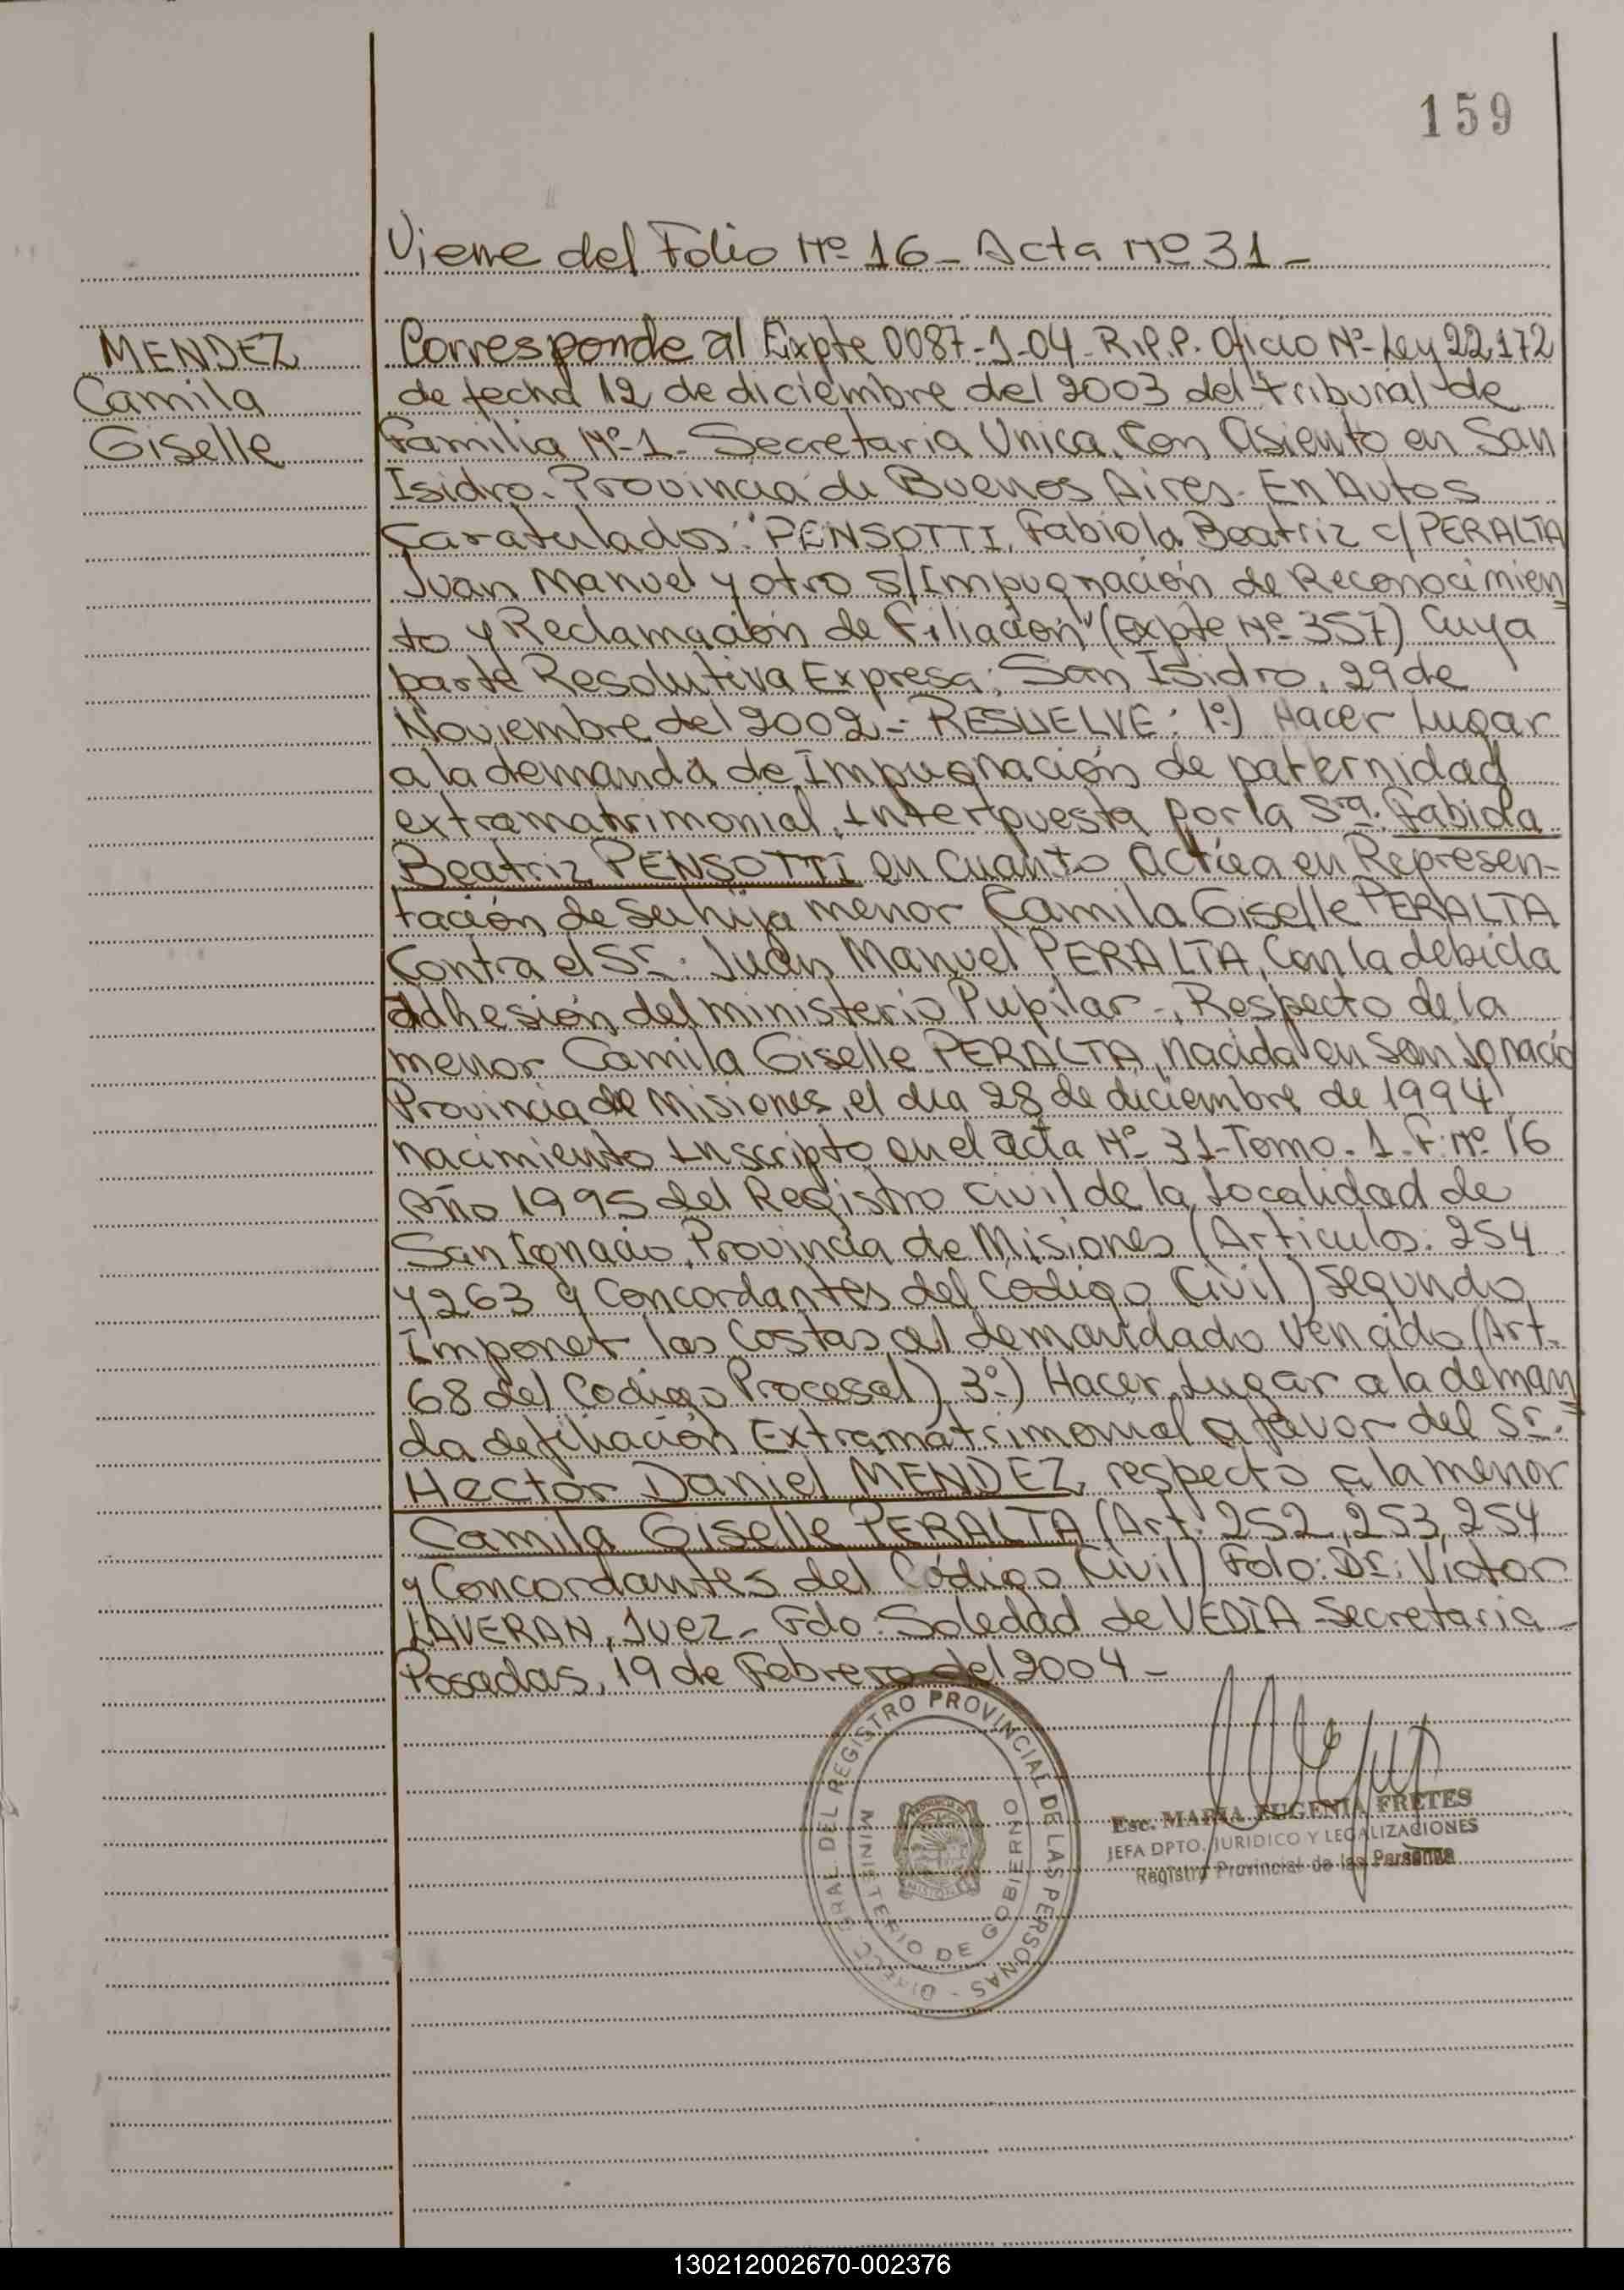 159
Viene del Folio Nº 16 - Acta Nº 31 -
MENDEZ
Camila
Giselle
Corresponde al Expte 0087-1-04-R.P.P. Oficio Nº-Ley 22.172
de fecha 12 de diciembre del 2003 del tribunal de
Familia Nº-1- Secretaria Unica, Con asiento en San
Isidro. Provincia de Buenos Aires. En Autos
Caratulados: "PENSOTTI, Fabiola Beatriz c/ PERALTA
Juan Manuel y otro s/Impugnación de Reconocimien
to y Reclamación de Filiación" (Expte Nº 357) Cuya
parte Resolutiva Expresa; San Isidro, 29 de
Noviembre del 2002.- RESUELVE: 1º) Hacer Lugar
a la demanda de Impugnación de paternidad
extramatrimonial, Interpuesta por la Sra. Fabiola
Beatriz PENSOTTI en cuanto actúa en Represen-
tación de su hija menor Camila Giselle PERALTA
Contra el Sr. Juan Manuel PERALTA, Con la debida
adhesión del ministerio Pupilar-, Respecto de la
menor Camila Giselle PERALTA, nacida en San Ignacio
Provincia de Misiones, el dia 28 de diciembre de 1994,
nacimiento Inscripto en el acta Nº 31-Tomo. 1. F. Nº 16
Año 1995 del Registro Civil de la Localidad de
San Ignacio, Provincia de Misiones (Articulos: 254
y 263 y Concordantes del Codigo Civil) segundo
Imponer las Costas al demandado vencido (Art.
68 del Codigo Procesal), 3º) Hacer Lugar a la deman
da de filiación Extramatrimonial a favor del Sr.
Hector Daniel MENDEZ, respecto a la menor
Camila Giselle PERALTA (Art. 252, 253, 254
y Concordantes del Código Civil) Fdo: Dr: Victor
LAVERAN, Juez- Fdo: Soledad de VEDIA Secretaria-
Posadas, 19 de Febrero del 2004-
DIRECC. GRAL. DEL REGISTRO PROVINCIAL DE LAS PERSONAS -
MINISTERIO DE GOBIERNO
PROVINCIA DE
MISIONES
Esc. MARIA EUGENIA FRETES
JEFA DPTO. JURIDICO Y LEGALIZACIONES
Registro Provincial de las Personas
130212002670-002376